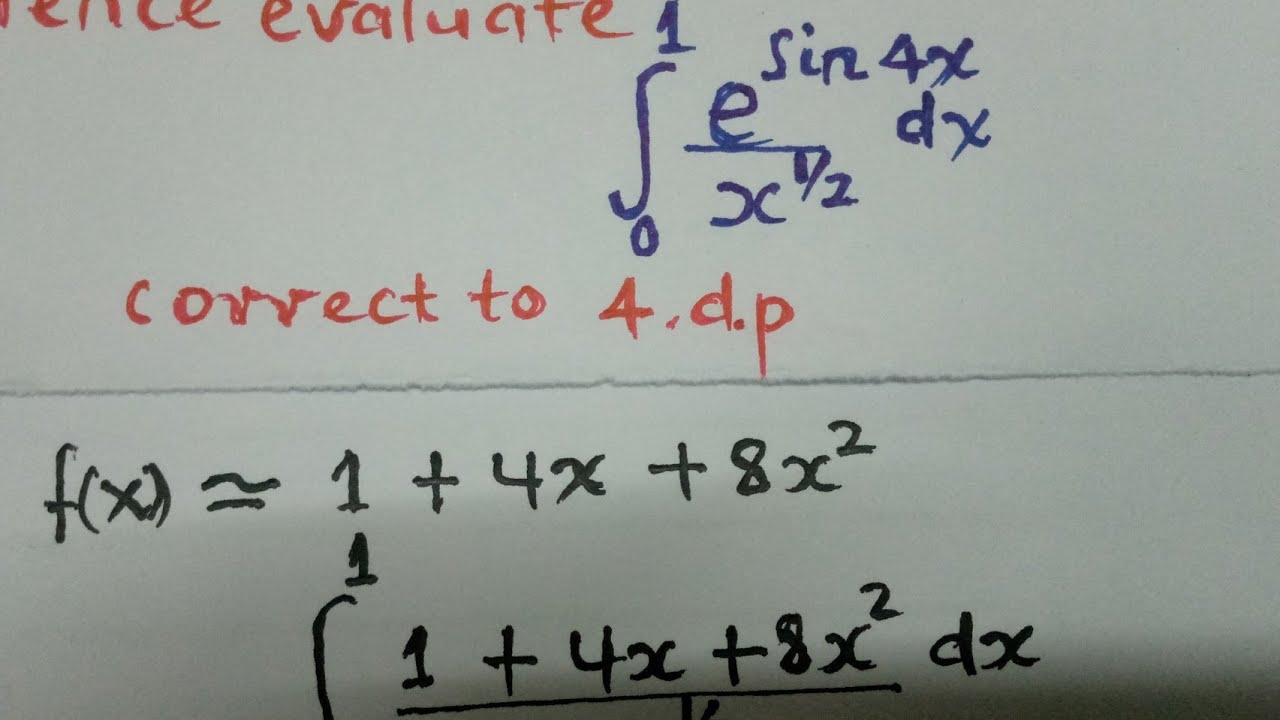 evaluate
∫₀¹ e^(sin 4x) / x^(1/2) dx
correct to 4.d.p
f(x) ≃ 1 + 4x + 8x²
∫¹ 1 + 4x + 8x² dx